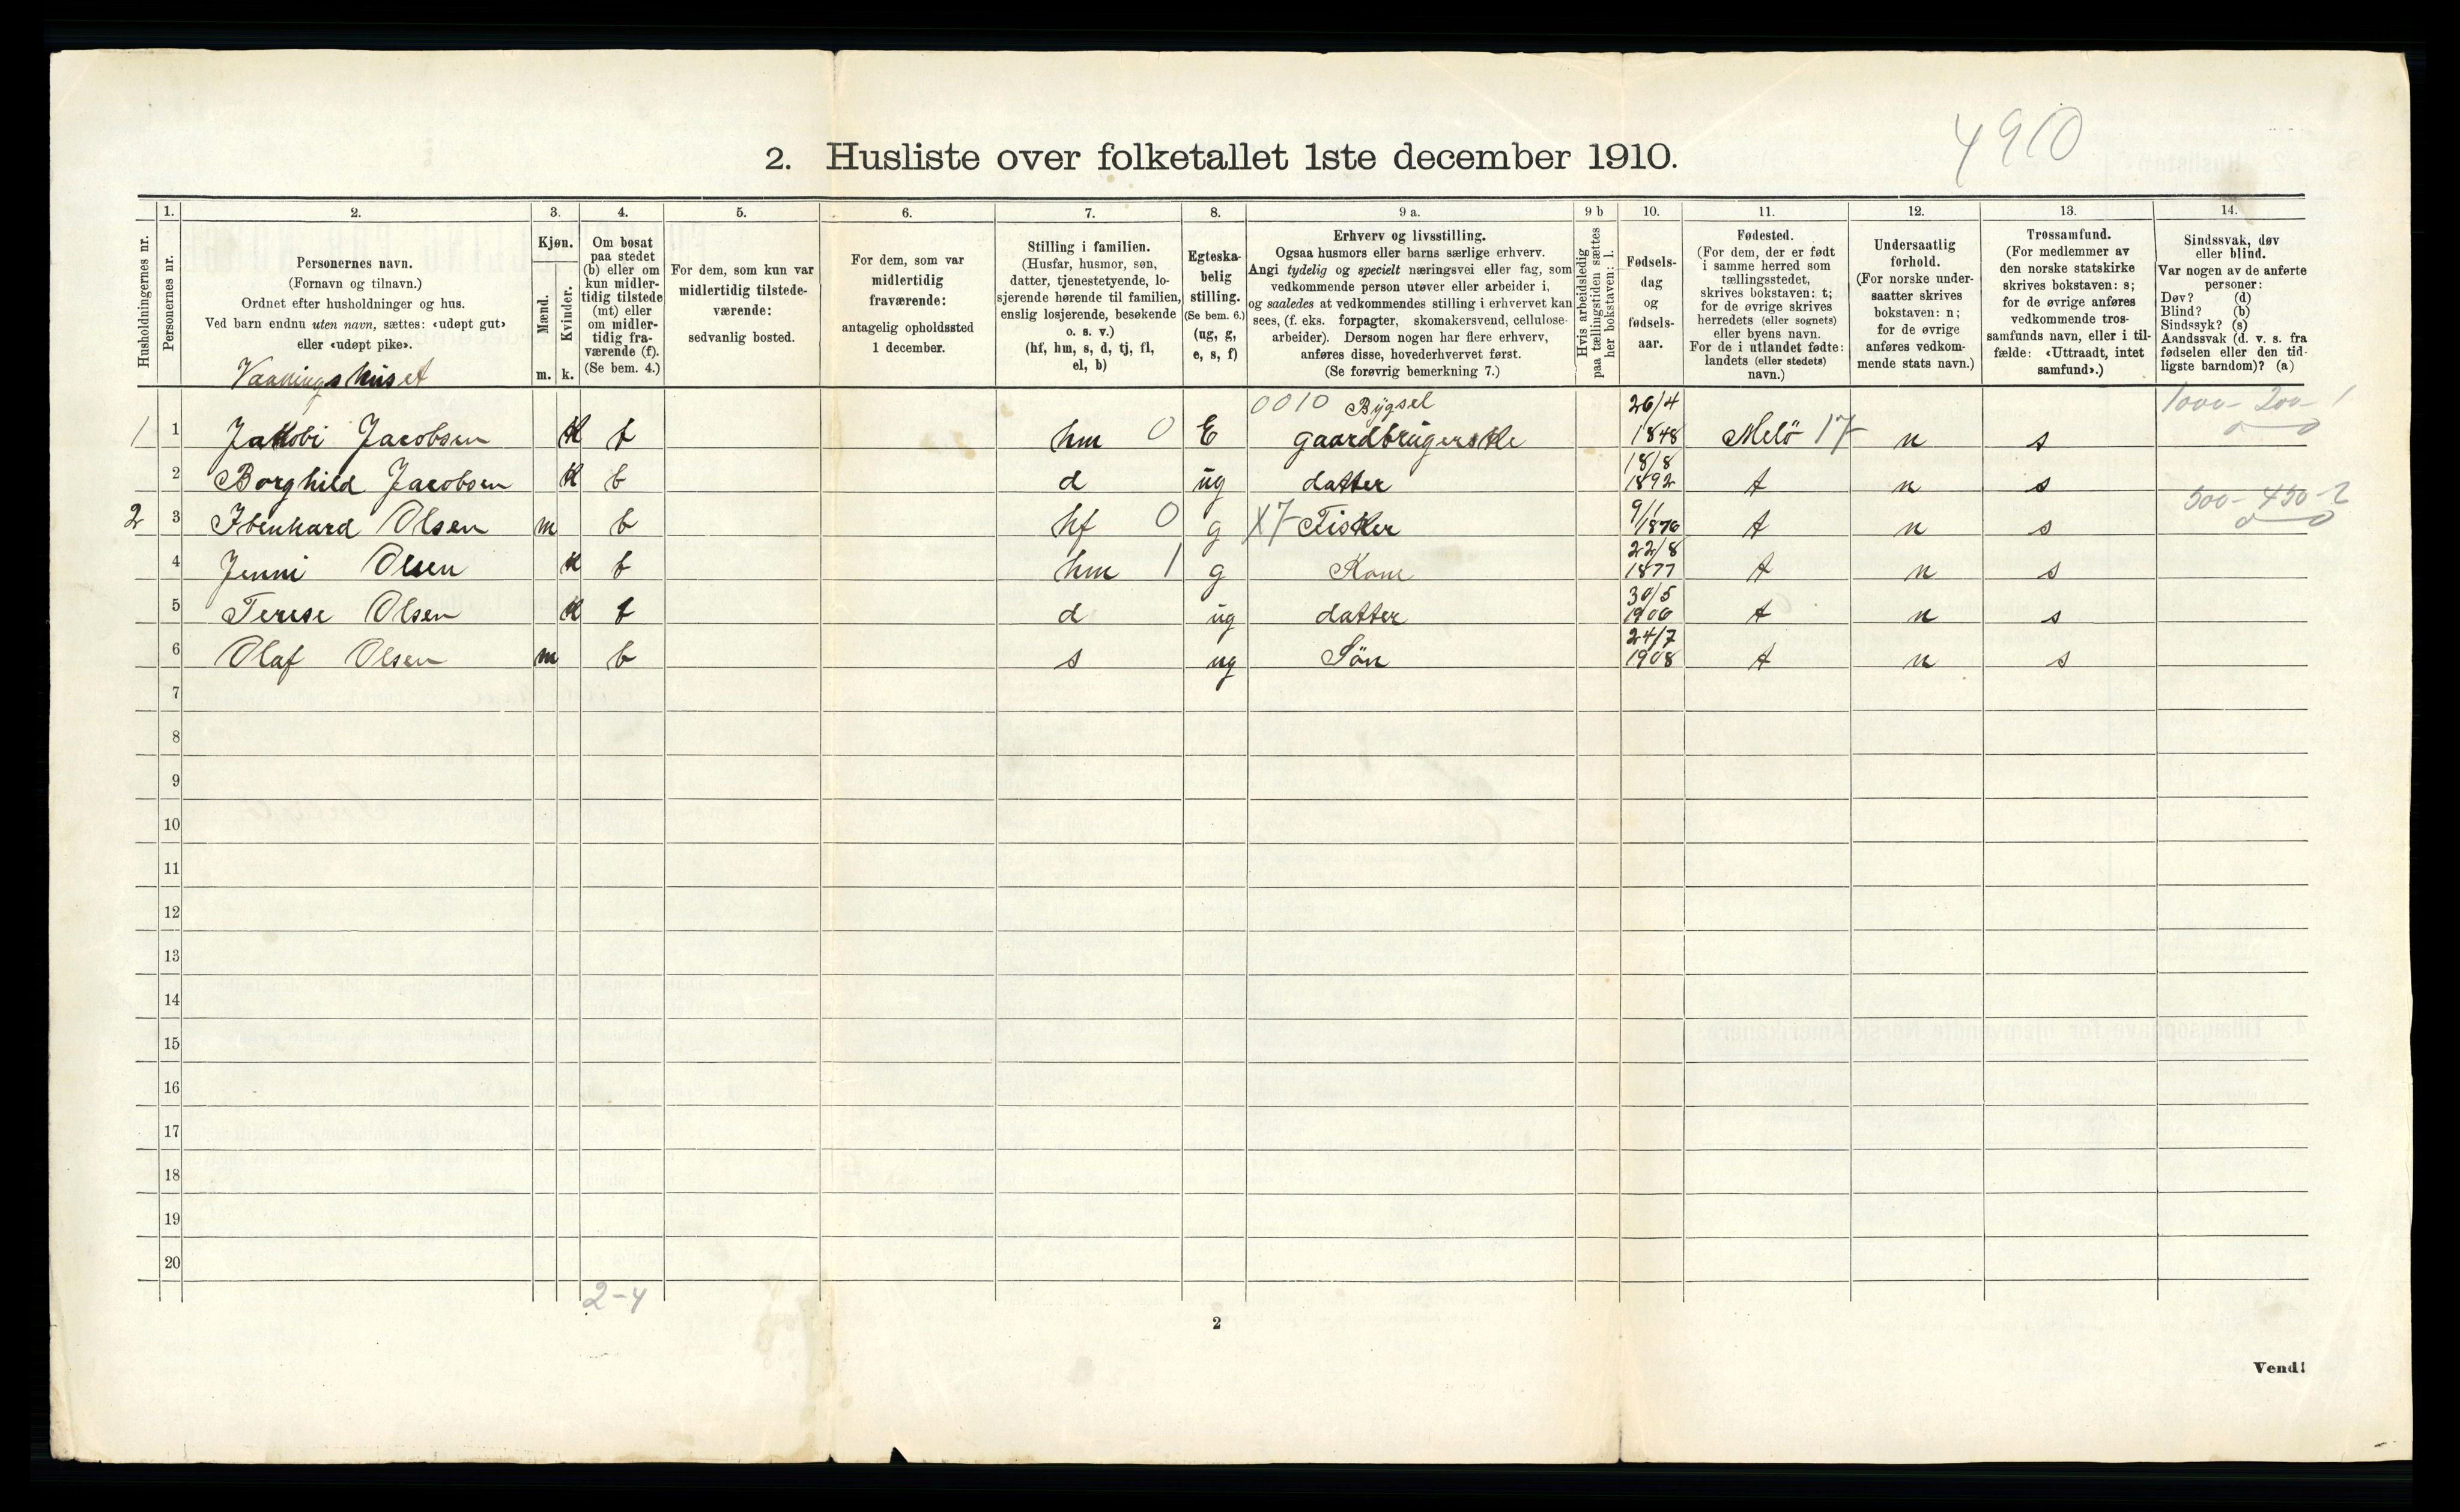 4910
2. Husliste over folketallet 1ste december 1910.
Husholdningernes nr.
1.
Personernes nr.
2.
Personernes navn.
(Fornavn og tilnavn.)
Ordnet efter husholdninger og hus.
Ved barn endnu uten navn, sættes: «udøpt gut»
eller «udøpt pike».
Vaaningshuset
3.
Kjøn.
Mænd.
Kvinder.
m. k.
4.
Om bosat
paa stedet
(b) eller om
kun midler-
tidig tilstede
(mt) eller
om midler-
tidig fra-
værende (f).
(Se bem. 4.)
5.
For dem, som kun var
midlertidig tilstede-
værende:
sedvanlig bosted.
6.
For dem, som var
midlertidig
fraværende:
antagelig opholdssted
1 december.
7.
Stilling i familien.
(Husfar, husmor, søn,
datter, tjenestetyende, lo-
sjerende hørende til familien,
enslig losjerende, besøkende
o. s. v.)
(hf, hm, s, d, tj, fl,
el, b)
8.
Egteska-
belig
stilling.
(Se bem. 6.)
(ug, g,
e, s, f)
9 a.
Erhverv og livsstilling.
Ogsaa husmors eller barns særlige erhverv.
Angi tydelig og specielt næringsvei eller fag, som
vedkommende person utøver eller arbeider i,
og saaledes at vedkommendes stilling i erhvervet kan
sees, (f. eks. forpagter, skomakersvend, cellulose-
arbeider). Dersom nogen har flere erhverv,
anføres disse, hovederhvervet først.
(Se forøvrig bemerkning 7.)
9 b
Hvis arbeidsledig
paa tællingstiden sættes
her bokstaven: l.
10.
Fødsels-
dag
og
fødsels-
aar.
11.
Fødested.
(For dem, der er født
i samme herred som
tællingsstedet,
skrives bokstaven: t;
for de øvrige skrives
herredets (eller sognets)
eller byens navn.
For de i utlandet fødte:
landets (eller stedets)
navn.)
12.
Undersaatlig
forhold.
(For norske under-
saatter skrives
bokstaven: n;
for de øvrige
anføres vedkom-
mende stats navn.)
13.
Trossamfund.
(For medlemmer av
den norske statskirke
skrives bokstaven: s;
for de øvrige anføres
vedkommende tros-
samfunds navn, eller i til-
fælde: «Uttraadt, intet
samfund».)
14.
Sindssvak, døv
eller blind.
Var nogen av de anførte
personer:
Døv? (d)
Blind? (b)
Sindssyk? (s)
Aandssvak (d. v. s. fra
fødselen eller den tid-
ligste barndom)? (a)
0010 Bygsel 26/4 1000- 200- 1
1 1 Jakobi Jacobsen K b hm 0 E gaardbrugerske 1848 Melö 17 n s 0 0
2 Borghild Jacobsen K b d ug datter 18/8 1892 t n s
500- 450-2
2 3 Ibenhard Olsen m b hf 0 g X7 Fisker 9/1 1876 t n s 0 0
4 Jenni Olsen K b hm 1 g Kone 22/8 1877 t n s
5 Terese Olsen K b d ug datter 30/5 1900 t n s
6 Olaf Olsen m b s ug Sön 24/7 1908 t n s
7
8
9
10
11
12
13
14
15
16
17
18
19
20
2-4
2
Vend!